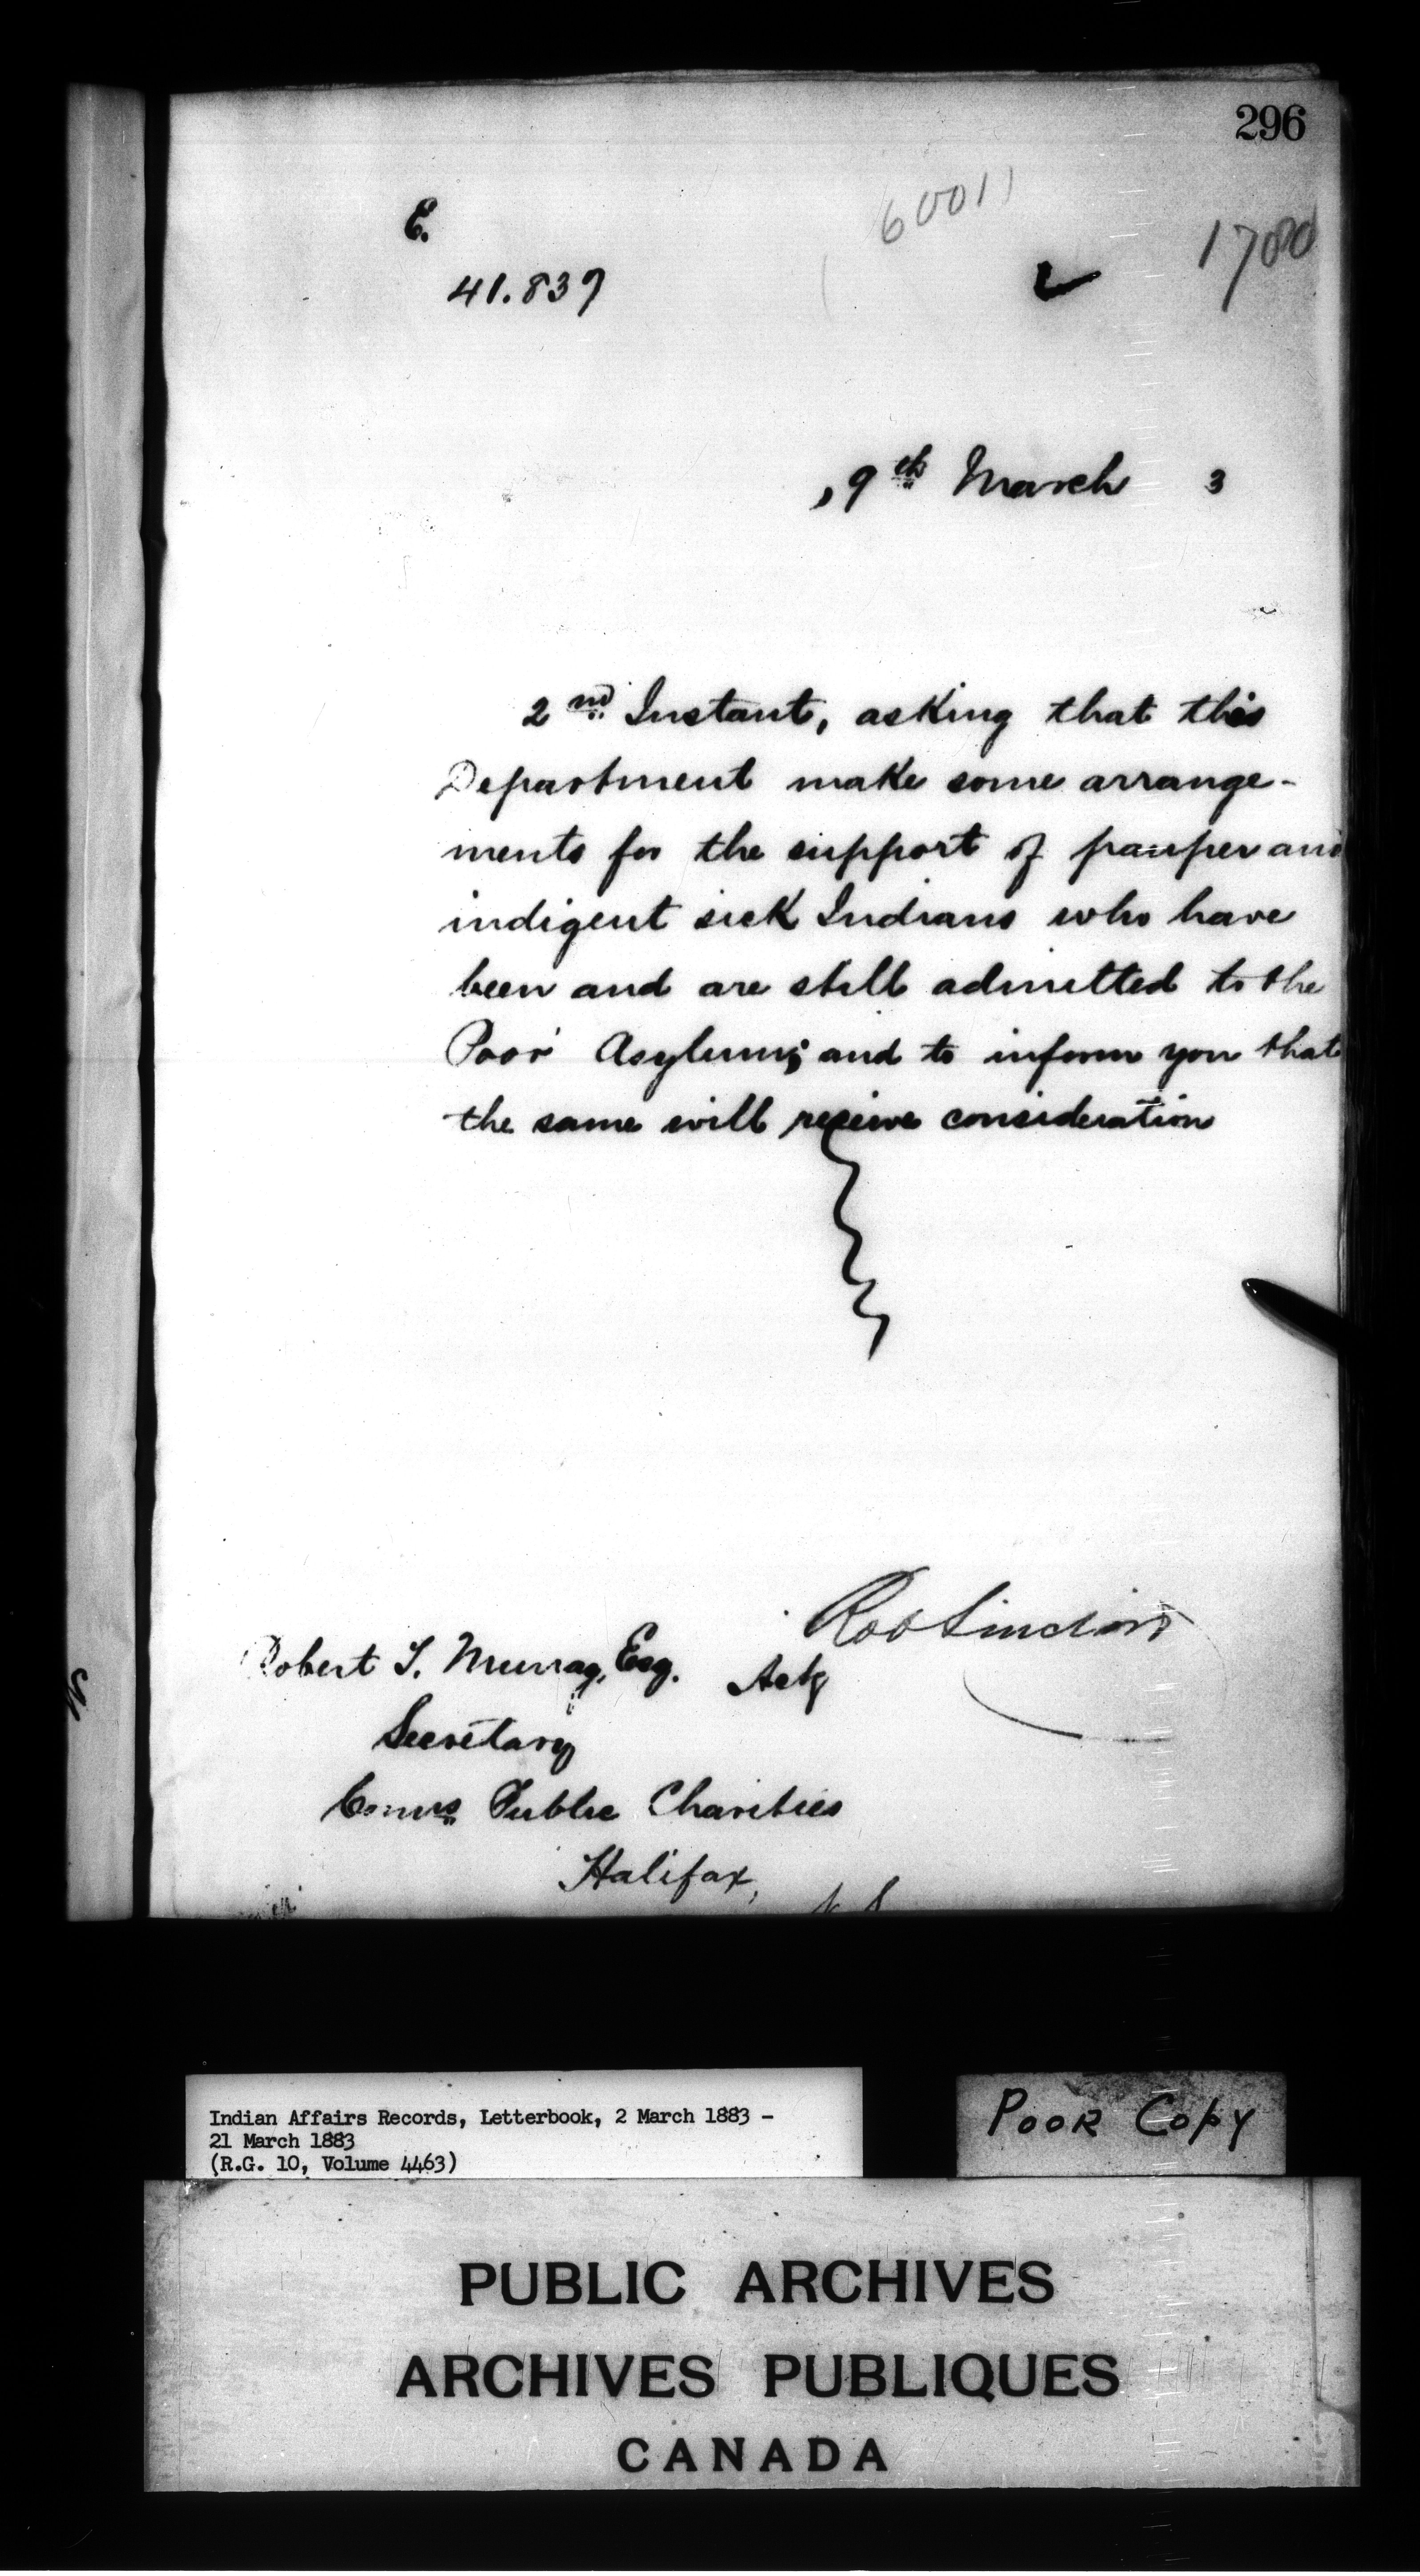 296
60011
E.
1700
41.837
, 9th March 3
2nd Instant, asking that this
Department make some arrange-
ments for the support of pauper and
indigent sick Indians who have
been and are still admitted to the
Poor Asylum; and to inform you that
the same will receive consideration
Rob Sinclair
Robert T. Murray, Esq.
Actg
Secretary
Comrs Public Charities
Halifax,
N.S.
Indian Affairs Records, Letterbook, 2 March 1883 -
21 March 1883
(R.G. 10, Volume 4463)
POOR COPY
PUBLIC ARCHIVES
ARCHIVES PUBLIQUES
CANADA